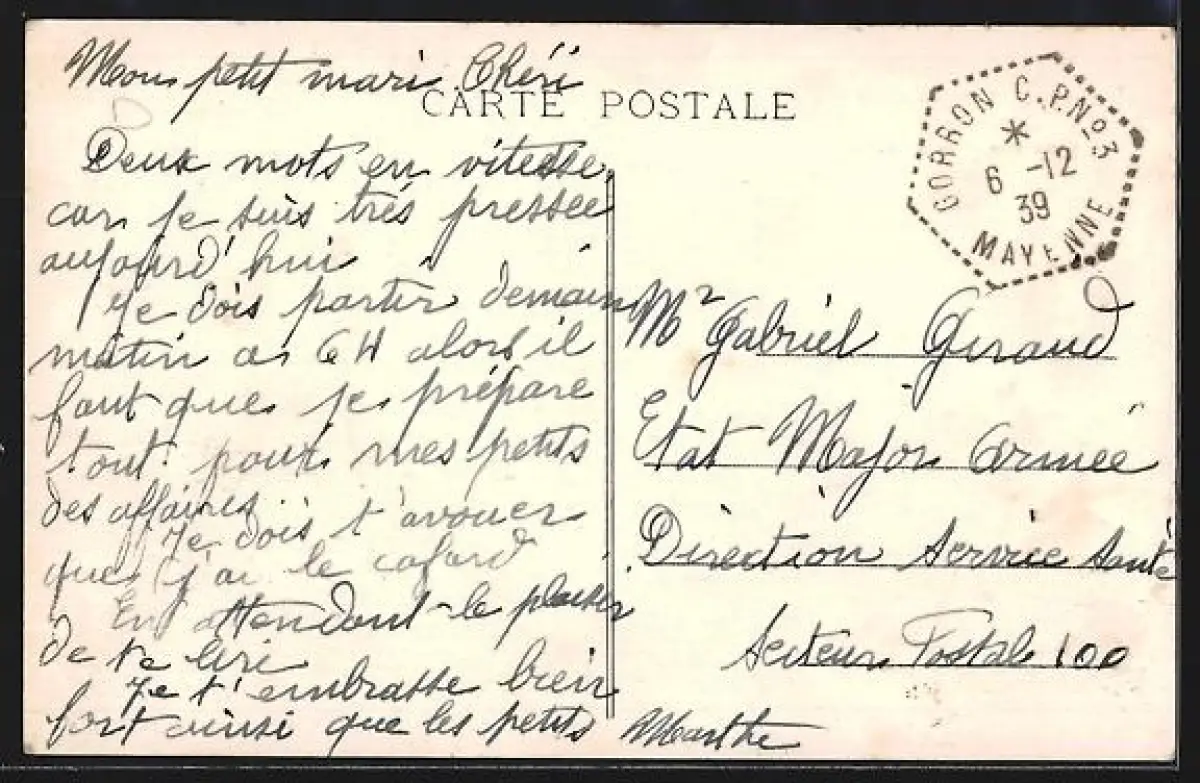 Mon petit mari Chéri
CARTE POSTALE
Deux mots en vitesse
car je suis très pressée
aujourd'hui
Je dois partir demain
matin a 6 H alors il
faut que je prépare
tout pour mes petits
des affaires.
Je dois t'avouer
que j'ai le cafard
En attendant le plaisir
de te lire
Je t'embrasse bien
fort ainsi que les petits
Marthe
GORRON C.P.No3
*
6 -12
39
MAYENNE
Mr Gabriel Giraud
Etat Major Armée
Direction Service Santé
Secteur Postale 100